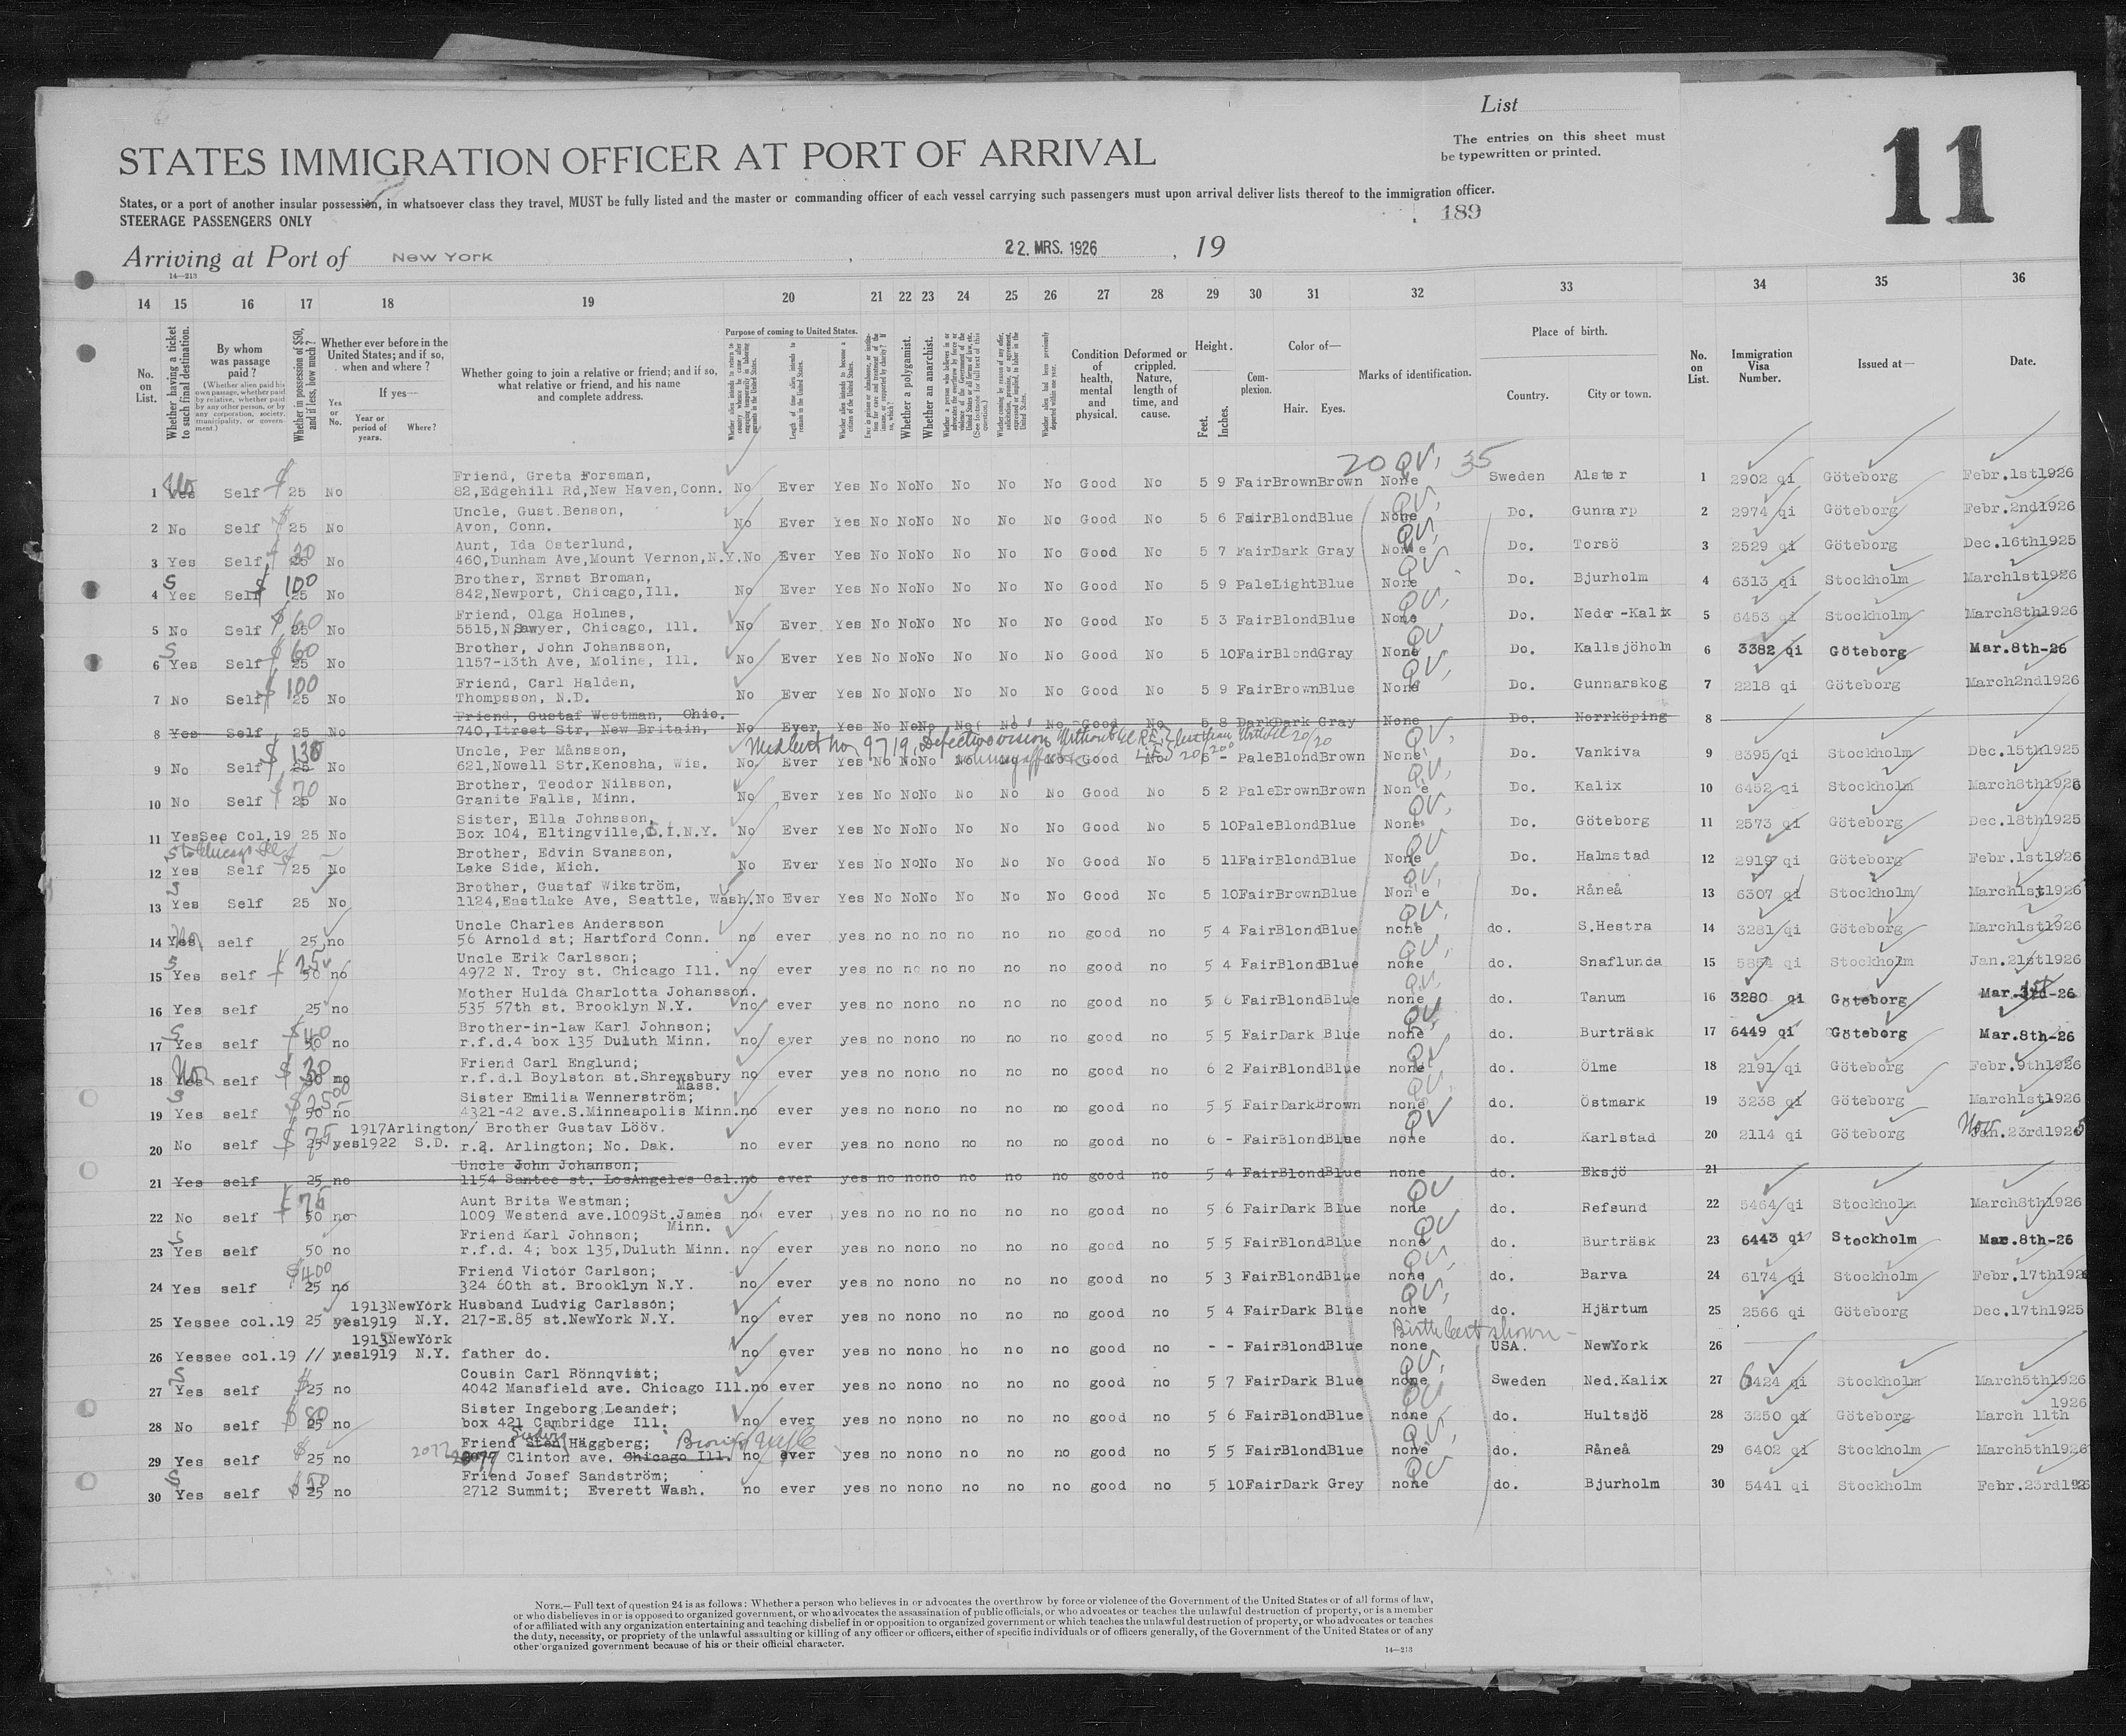 List
The entries on this sheet must
be typewritten or printed.
11
STATES IMMIGRATION OFFICER AT PORT OF ARRIVAL
States, or a port of another insular possession, in whatsoever class they travel, MUST be fully listed and the master or commanding officer of each vessel carrying such passengers must upon arrival deliver lists thereof to the immigration officer.
STEERAGE PASSENGERS ONLY
189
Arriving at Port of New York, 22. MRS. 1926, 19
14—213
14 15 16 17 18 19 20 21 22 23 24 25 26 27 28 29 30 31 32 33 34 35 36
No. on List.
Whether having a ticket to such final destination.
By whom was passage paid?
(Whether alien paid his own passage, whether paid by relative, whether paid by any other person, or by any corporation, society, municipality, or government.)
Whether in possession of $50, and if less, how much?
Whether ever before in the United States; and if so, when and where?
If yes—
Yes or No.
Year or period of years.
Where?
Whether going to join a relative or friend; and if so, what relative or friend, and his name and complete address.
Purpose of coming to United States.
Length of time alien intends to remain in the United States.
Whether alien intends to become a citizen of the United States.
Whether a polygamist.
Whether an anarchist.
Condition of health, mental and physical.
Deformed or crippled. Nature, length of time, and cause.
Height.
Feet. Inches.
Complexion.
Color of—
Hair. Eyes.
Marks of identification.
Place of birth.
Country. City or town.
No. on List.
Immigration Visa Number.
Issued at—
Date.
20 QV, 35
Friend, Greta Forsman,
1 Yes No Self $ 25 No 82,Edgehill Rd,New Haven,Conn. No Ever Yes No No No No No No Good No 5 9 Fair Brown Brown None Sweden Alster 1 2902 qi Göteborg Febr.1st1926
Uncle, Gust.Benson,
2 No Self $ 25 No Avon, Conn. No Ever Yes No No No No No No Good No 5 6 Fair Blond Blue None QV, Do. Gunnarp 2 2974 qi Göteborg Febr.2nd1926
Aunt, Ida Österlund,
3 Yes Self $ 30 25 No 460,Dunham Ave,Mount Vernon,N.Y. No Ever Yes No No No No No No Good No 5 7 Fair Dark Gray None QV, Do. Torsö 3 2529 qi Göteborg Dec.16th1925
Brother, Ernst Broman,
4 S Yes Self $ 100 25 No 842,Newport, Chicago,Ill. No Ever Yes No No No No No No Good No 5 9 Pale Light Blue None QV Do. Bjurholm 4 6313 qi Stockholm March1st1926
Friend, Olga Holmes,
5 No Self $ 60 25 No 5515,N.Sawyer, Chicago, Ill. No Ever Yes No No No No No No Good No 5 3 Fair Blond Blue None QV, Do. Neder-Kalix 5 6453 qi Stockholm March8th1926
Brother, John Johansson,
6 S Yes Self $ 60 25 No 1157-13th Ave, Moline, Ill. No Ever Yes No No No No No No Good No 5 10 Fair Blond Gray None QV Do. Kallsjöholm 6 3382 qi Göteborg Mar.8th-26
Friend, Carl Halden,
7 No Self $ 100 25 No Thompson, N.D. No Ever Yes No No No No No No Good No 5 9 Fair Brown Blue None QV, Do. Gunnarskog 7 2218 qi Göteborg March2nd1926
Friend, Gustaf Westman, Ohio.
8 Yes Self 25 No 740,Itreet Str, New Britain, No Ever Yes No No No No No No Good No 5 8 Dark Dark Gray None Do. Norrköping 8
Med Cert No 9719, Defective vision
Uncle, Per Månsson,
9 No Self $ 130 25 No 621,Nowell Str.Kenosha, Wis. No Ever Yes No No No No Good No 5 - Pale Blond Brown None QV, Do. Vankiva 9 8395 qi Stockholm Dec.15th1925
Brother, Teodor Nilsson,
10 No Self $ 70 25 No Granite Falls, Minn. No Ever Yes No No No No No No Good No 5 2 Pale Brown Brown None QV, Do. Kalix 10 6452 qi Stockholm March8th1926
Sister, Ella Johnsson,
11 Yes See Col.19 25 No Box 104, Eltingville,S.I.N.Y. No Ever Yes No No No No No No Good No 5 10 Pale Blond Blue None QV, Do. Göteborg 11 2573 qi Göteborg Dec.18th1925
S to Chicago Ill
Brother, Edvin Svansson,
12 Yes Self $ 25 No Lake Side, Mich. No Ever Yes No No No No No No Good No 5 11 Fair Blond Blue None QV Do. Halmstad 12 2919 qi Göteborg Febr.1st1926
Brother, Gustaf Wikström,
13 S Yes Self 25 No 1124,Eastlake Ave, Seattle, Wash. No Ever Yes No No No No No No Good No 5 10 Fair Brown Blue None QV, Do. Råneå 13 6307 qi Stockholm March1st1926
Uncle Charles Andersson
14 Yes No self 25 no 56 Arnold st; Hartford Conn. no ever yes no no no no no no good no 5 4 Fair Blond Blue none QV, do. S.Hestra 14 3281 qi Göteborg March1st1926
Uncle Erik Carlsson;
15 S Yes self $ 25 50 no 4972 N. Troy st. Chicago Ill. no ever yes no no no no no no good no 5 4 Fair Blond Blue none QV, do. Snaflunda 15 5854 qi Stockholm Jan.21st1926
Mother Hulda Charlotta Johansson.
16 Yes self 25 no 535 57th st. Brooklyn N.Y. no ever yes no no no no no no good no 5 6 Fair Blond Blue none QV, do. Tanum 16 3280 qi Göteborg Mar.1st-26
Brother-in-law Karl Johnson;
17 S Yes self $ 40 50 no r.f.d.4 box 135 Duluth Minn. no ever yes no no no no no no good no 5 5 Fair Dark Blue none QV, do. Burträsk 17 6449 qi Göteborg Mar.8th-26
Friend Carl Englund;
18 Yes No self $ 30 50 no r.f.d.1 Boylston st.Shrewsbury Mass. no ever yes no no no no no no good no 6 2 Fair Blond Blue none QV do. Ölme 18 2191 qi Göteborg Febr.9th1926
Sister Emilia Wennerström;
19 S Yes self 50 no 4321-42 ave.S.Minneapolis Minn. no ever yes no no no no no no good no 5 5 Fair Dark Brown none QV, do. Östmark 19 3238 qi Göteborg March1st1926
1917 Arlington/ Brother Gustav Lööv.
20 No self $ 75 25 yes 1922 S.D. r.2. Arlington; No. Dak. no ever yes no no no no no no good no 6 - Fair Blond Blue none QV do. Karlstad 20 2114 qi Göteborg Nov. Jan.23rd1925
Uncle John Johanson;
21 Yes self 25 no 1154 Santee st. LosAngeles Cal. no ever yes no no no no no no good no 5 4 Fair Blond Blue none do. Eksjö 21
Aunt Brita Westman;
22 No self $ 75 50 no 1009 Westend ave.1009St.James Minn. no ever yes no no no no no no good no 5 6 Fair Dark Blue none QV do. Refsund 22 5464 qi Stockholm March8th1926
Friend Karl Johnson;
23 S Yes self 50 no r.f.d. 4; box 135,Duluth Minn. no ever yes no no no no no no good no 5 5 Fair Blond Blue none QV do. Burträsk 23 6443 qi Stockholm Mar.8th-26
Friend Victor Carlson;
24 Yes self $400 25 no 324 60th st. Brooklyn N.Y. no ever yes no no no no no no good no 5 3 Fair Blond Blue none QV, do. Barva 24 6174 qi Stockholm Febr.17th1926
1913 NewYork Husband Ludvig Carlsson;
25 Yes see col.19 25 yes 1919 N.Y. 217-E.85 st.NewYork N.Y. no ever yes no no no no no no good no 5 4 Fair Dark Blue none QV, do. Hjärtum 25 2566 qi Göteborg Dec.17th1925
1915 NewYork Birth Cert shown -
26 Yes see col.19 // yes 1919 N.Y. father do. no ever yes no no no no no no good no - - Fair Blond Blue none USA. NewYork 26
Cousin Carl Rönnqvist;
27 S Yes self $ 25 no 4042 Mansfield ave. Chicago Ill. no ever yes no no no no no no good no 5 7 Fair Dark Blue none QV, Sweden Ned.Kalix 27 6424 qi Stockholm March5th1926
Sister Ingeborg Leander;
28 No self $ 80 25 no box 421 Cambridge Ill. no ever yes no no no no no no good no 5 6 Fair Blond Blue none QV do. Hultsjö 28 3250 qi Göteborg March 11th 1926
Friend Sten Häggberg;
29 Yes self $ 25 no 2077 Clinton ave. Chicago Ill. no ever yes no no no no no no good no 5 5 Fair Blond Blue none QV, do. Råneå 29 6402 qi Stockholm March5th1926
Friend Josef Sandström;
30 S Yes self $ 50 25 no 2712 Summit; Everett Wash. no ever yes no no no no no no good no 5 10 Fair Dark Grey none QV do. Bjurholm 30 5441 qi Stockholm Febr.23rd1926
NOTE.—Full text of question 24 is as follows: Whether a person who believes in or advocates the overthrow by force or violence of the Government of the United States or of all forms of law,
or who disbelieves in or is opposed to organized government, or who advocates the assassination of public officials, or who advocates or teaches the unlawful destruction of property, or is a member
of or affiliated with any organization entertaining and teaching disbelief in or opposition to organized government or which teaches the unlawful destruction of property, or who advocates or teaches
the duty, necessity, or propriety of the unlawful assaulting or killing of any officer or officers, either of specific individuals or of officers generally, of the Government of the United States or of any
other organized government because of his or their official character.
14—213